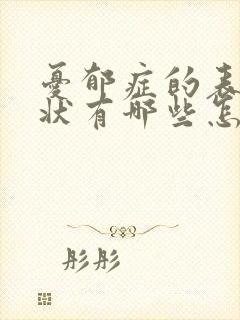 憂郁症的表
状有哪些怎
彤彤